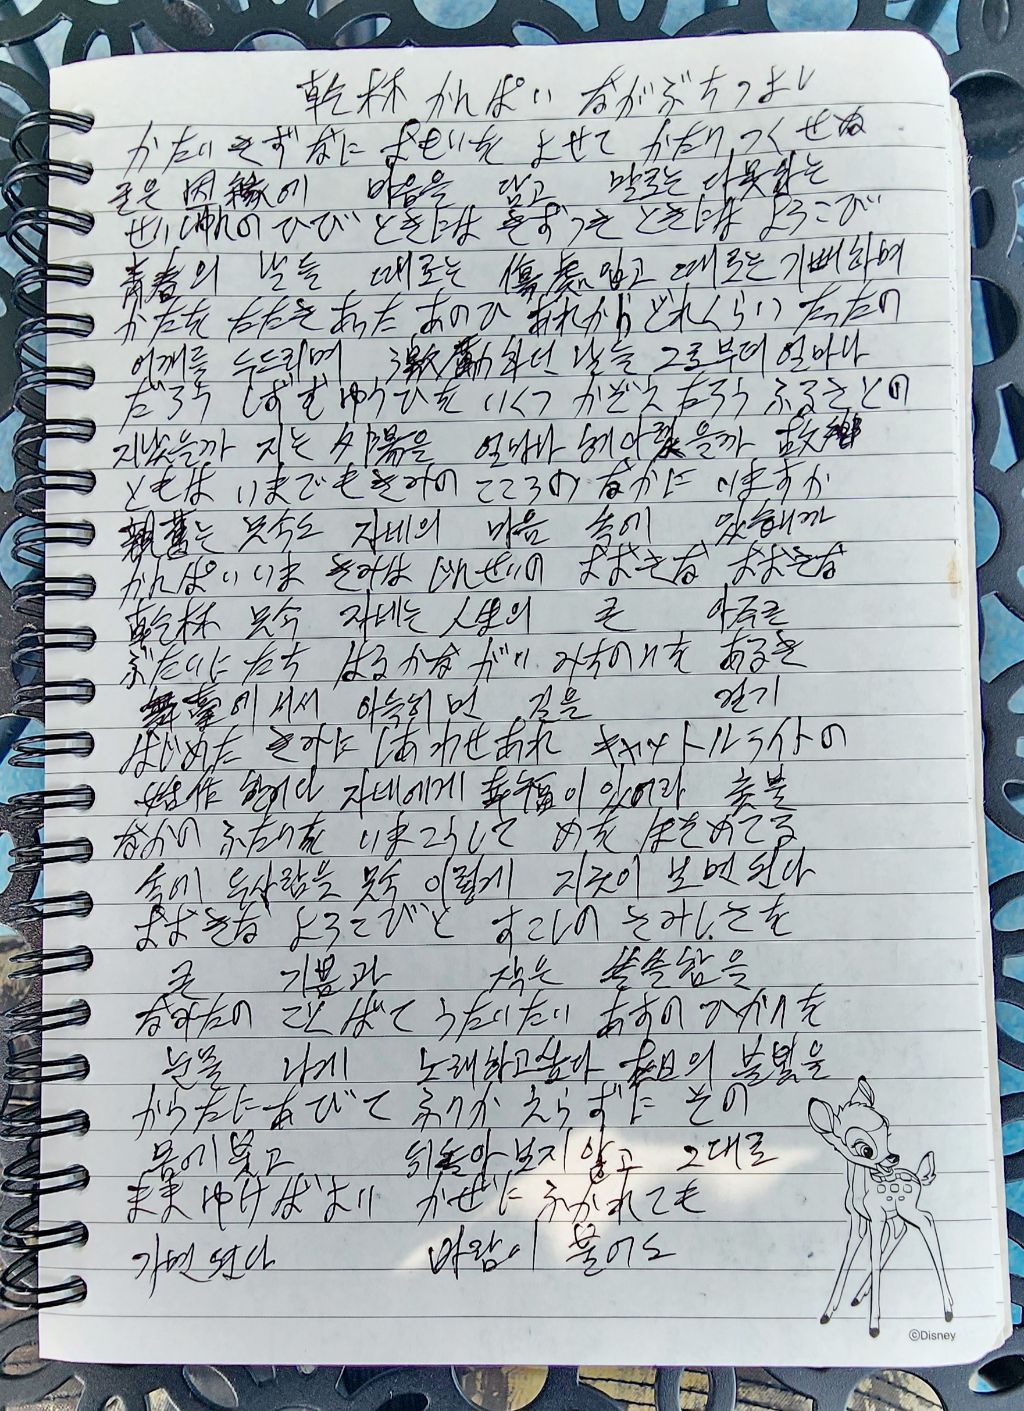 乾杯 かんぱい ながぶちつよし
かたい きずなに おもいを よせて かたり つくせぬ
굳은 因緣에 마음을 담고 말로는 다못하는
せいしゅんの ひび ときには きずつき ときには よろこび
青春의 날들 때로는 傷處입고 때로는 기뻐하며
かたを たたき あった あのひ あれから どれくらい たったの
어깨를 두드리며 激動하던 날들 그로부터 얼마나
だろう しずむ ゆうひを いくつ かぞえ だろう ふるさとの
지났을까 지는 夕陽을 얼마나 헤아렸을까 故鄕
ともは いまでも きみの こころの なかに いますか
親舊는 只今도 자네의 마음 속에 있습니까
かんぱい いま きみは じんせいの おおきな おおきな
乾杯 只今 자네는 人生의 큰 아주큰
ぶたいに たち はるかな がい みちのりを あるき
舞臺에 서서 아득히 먼 길을 걷기
はじめた きみに しあわせあれ キャットルライトの
始作했다 자네에게 幸福이 있어라 촛불
なかの ふたりを いまこうして めを ほそめてる
속에 두사람을 只今 이렇게 지긋이 보면 된다
おおきな よろこびと すこしの さみしさを
큰 기쁨과 작은 쓸쓸함을
なみだの ことばで うたいたい あすの ひかりを
눈물 나게 노래하고싶다 来日의 불빛을
からだにあびて ふりかえらずに その
몸에 붓고 뒤돌아보지 않고 그대로
まま ゆけばよい かぜに ふかれても
가면 된다 바람이 불어도
©Disney